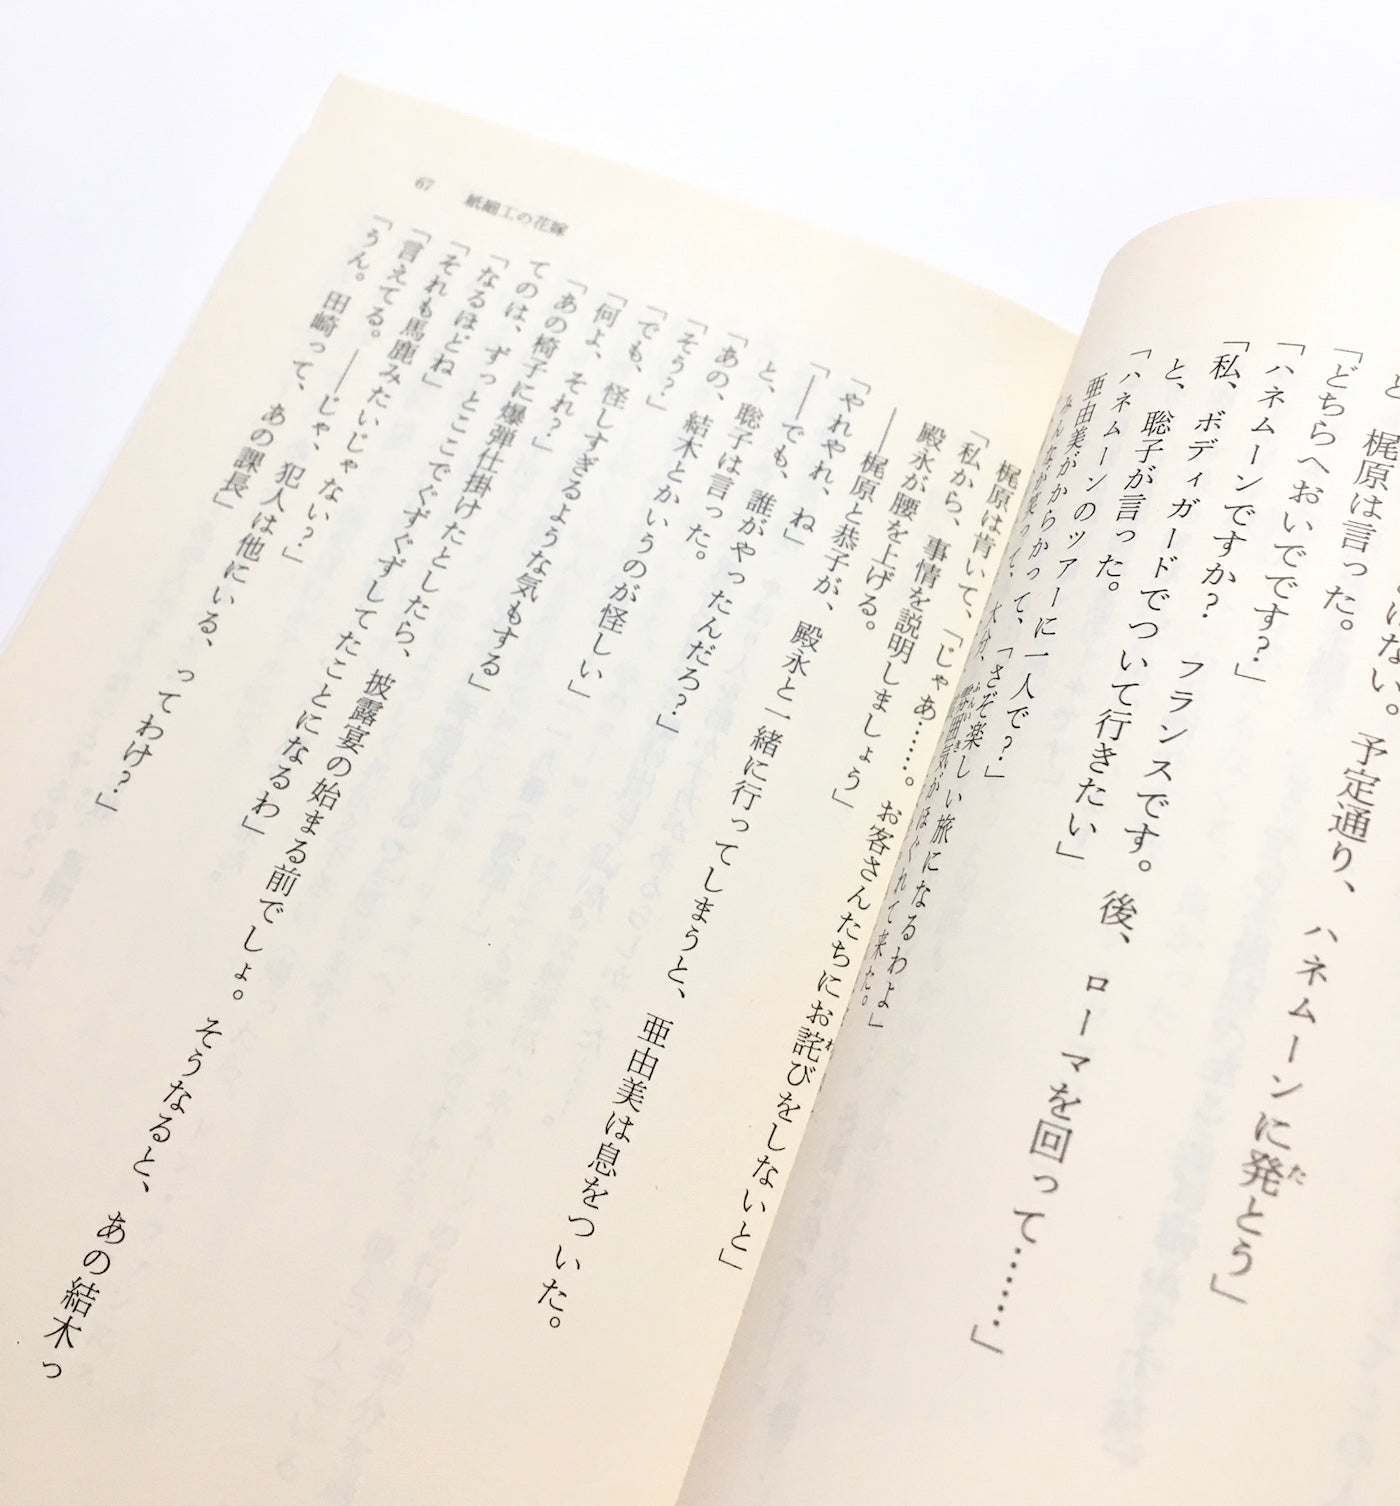 はない。予定通り、ハネムーンに発とう」
と、梶原は言った。
「どちらへおいでです?」
「ハネムーンですか? フランスです。後、ローマを回って……」
「私、ボディガードでついて行きたい」
と、聡子が言った。
「ハネムーンのツアーに一人で?」
亜由美がからかって、「さぞ楽しい旅になるわよ」
みんなが笑って、大分、雰囲気がほぐれて来た。
67 紙細工の花嫁
梶原は肯いて、「じゃあ……。お客さんたちにお詫びをしないと」
「私から、事情を説明しましょう」
殿永が腰を上げる。
――梶原と恭子が、殿永と一緒に行ってしまうと、亜由美は息をついた。
「やれやれ、ね」
「――でも、誰がやったんだろ?」
と、聡子は言った。
「あの、結木とかいうのが怪しい」
「そう?」
「でも、怪しすぎるような気もする」
「何よ、それ?」
「あの椅子に爆弾仕掛けたとしたら、披露宴の始まる前でしょ。そうなると、あの結木っ
てのは、ずっとここでぐずぐずしてたことになるわ」
「なるほどね」
「それも馬鹿みたいじゃない?」
「言えてる。――じゃ、犯人は他にいる、ってわけ?」
「うん。田崎って、あの課長」